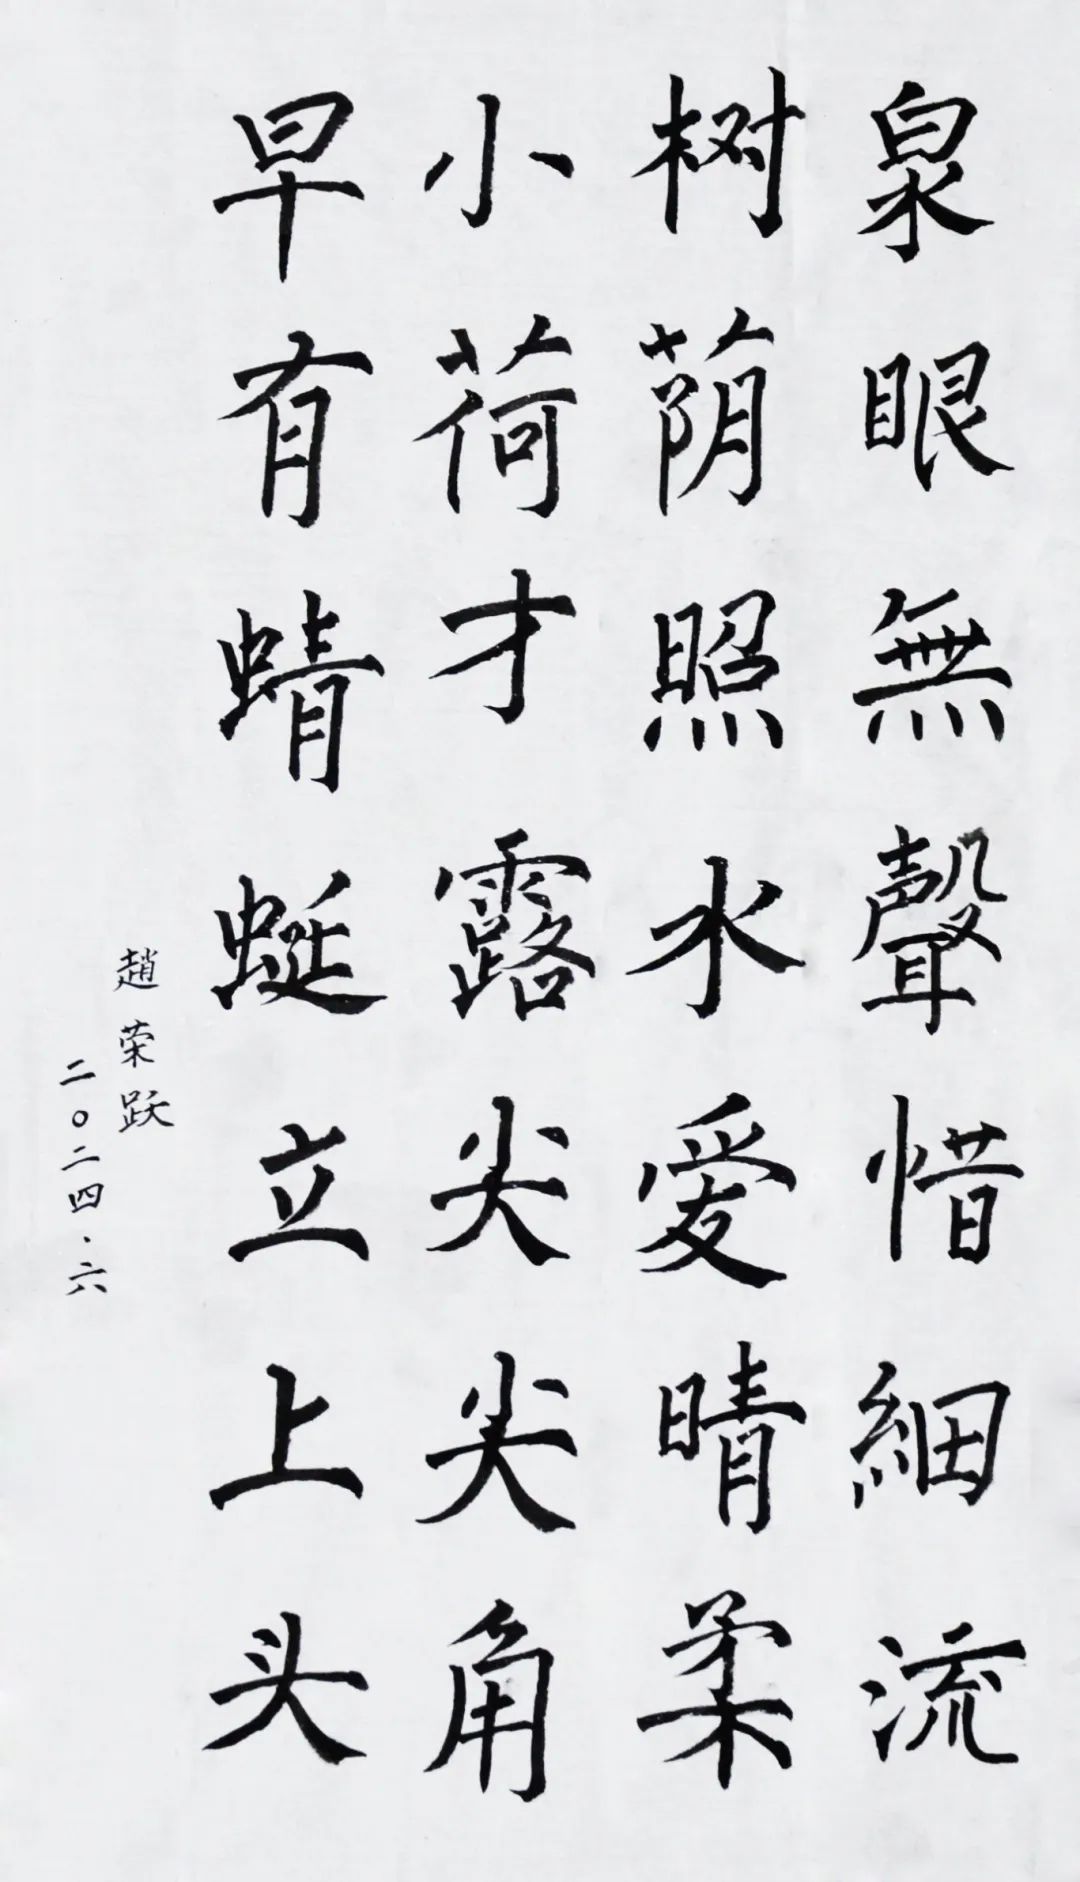 泉眼無聲惜細流
树荫照水愛晴柔
小荷才露尖尖角
早有蜻蜓立上头
趙荣跃
二〇二四.六